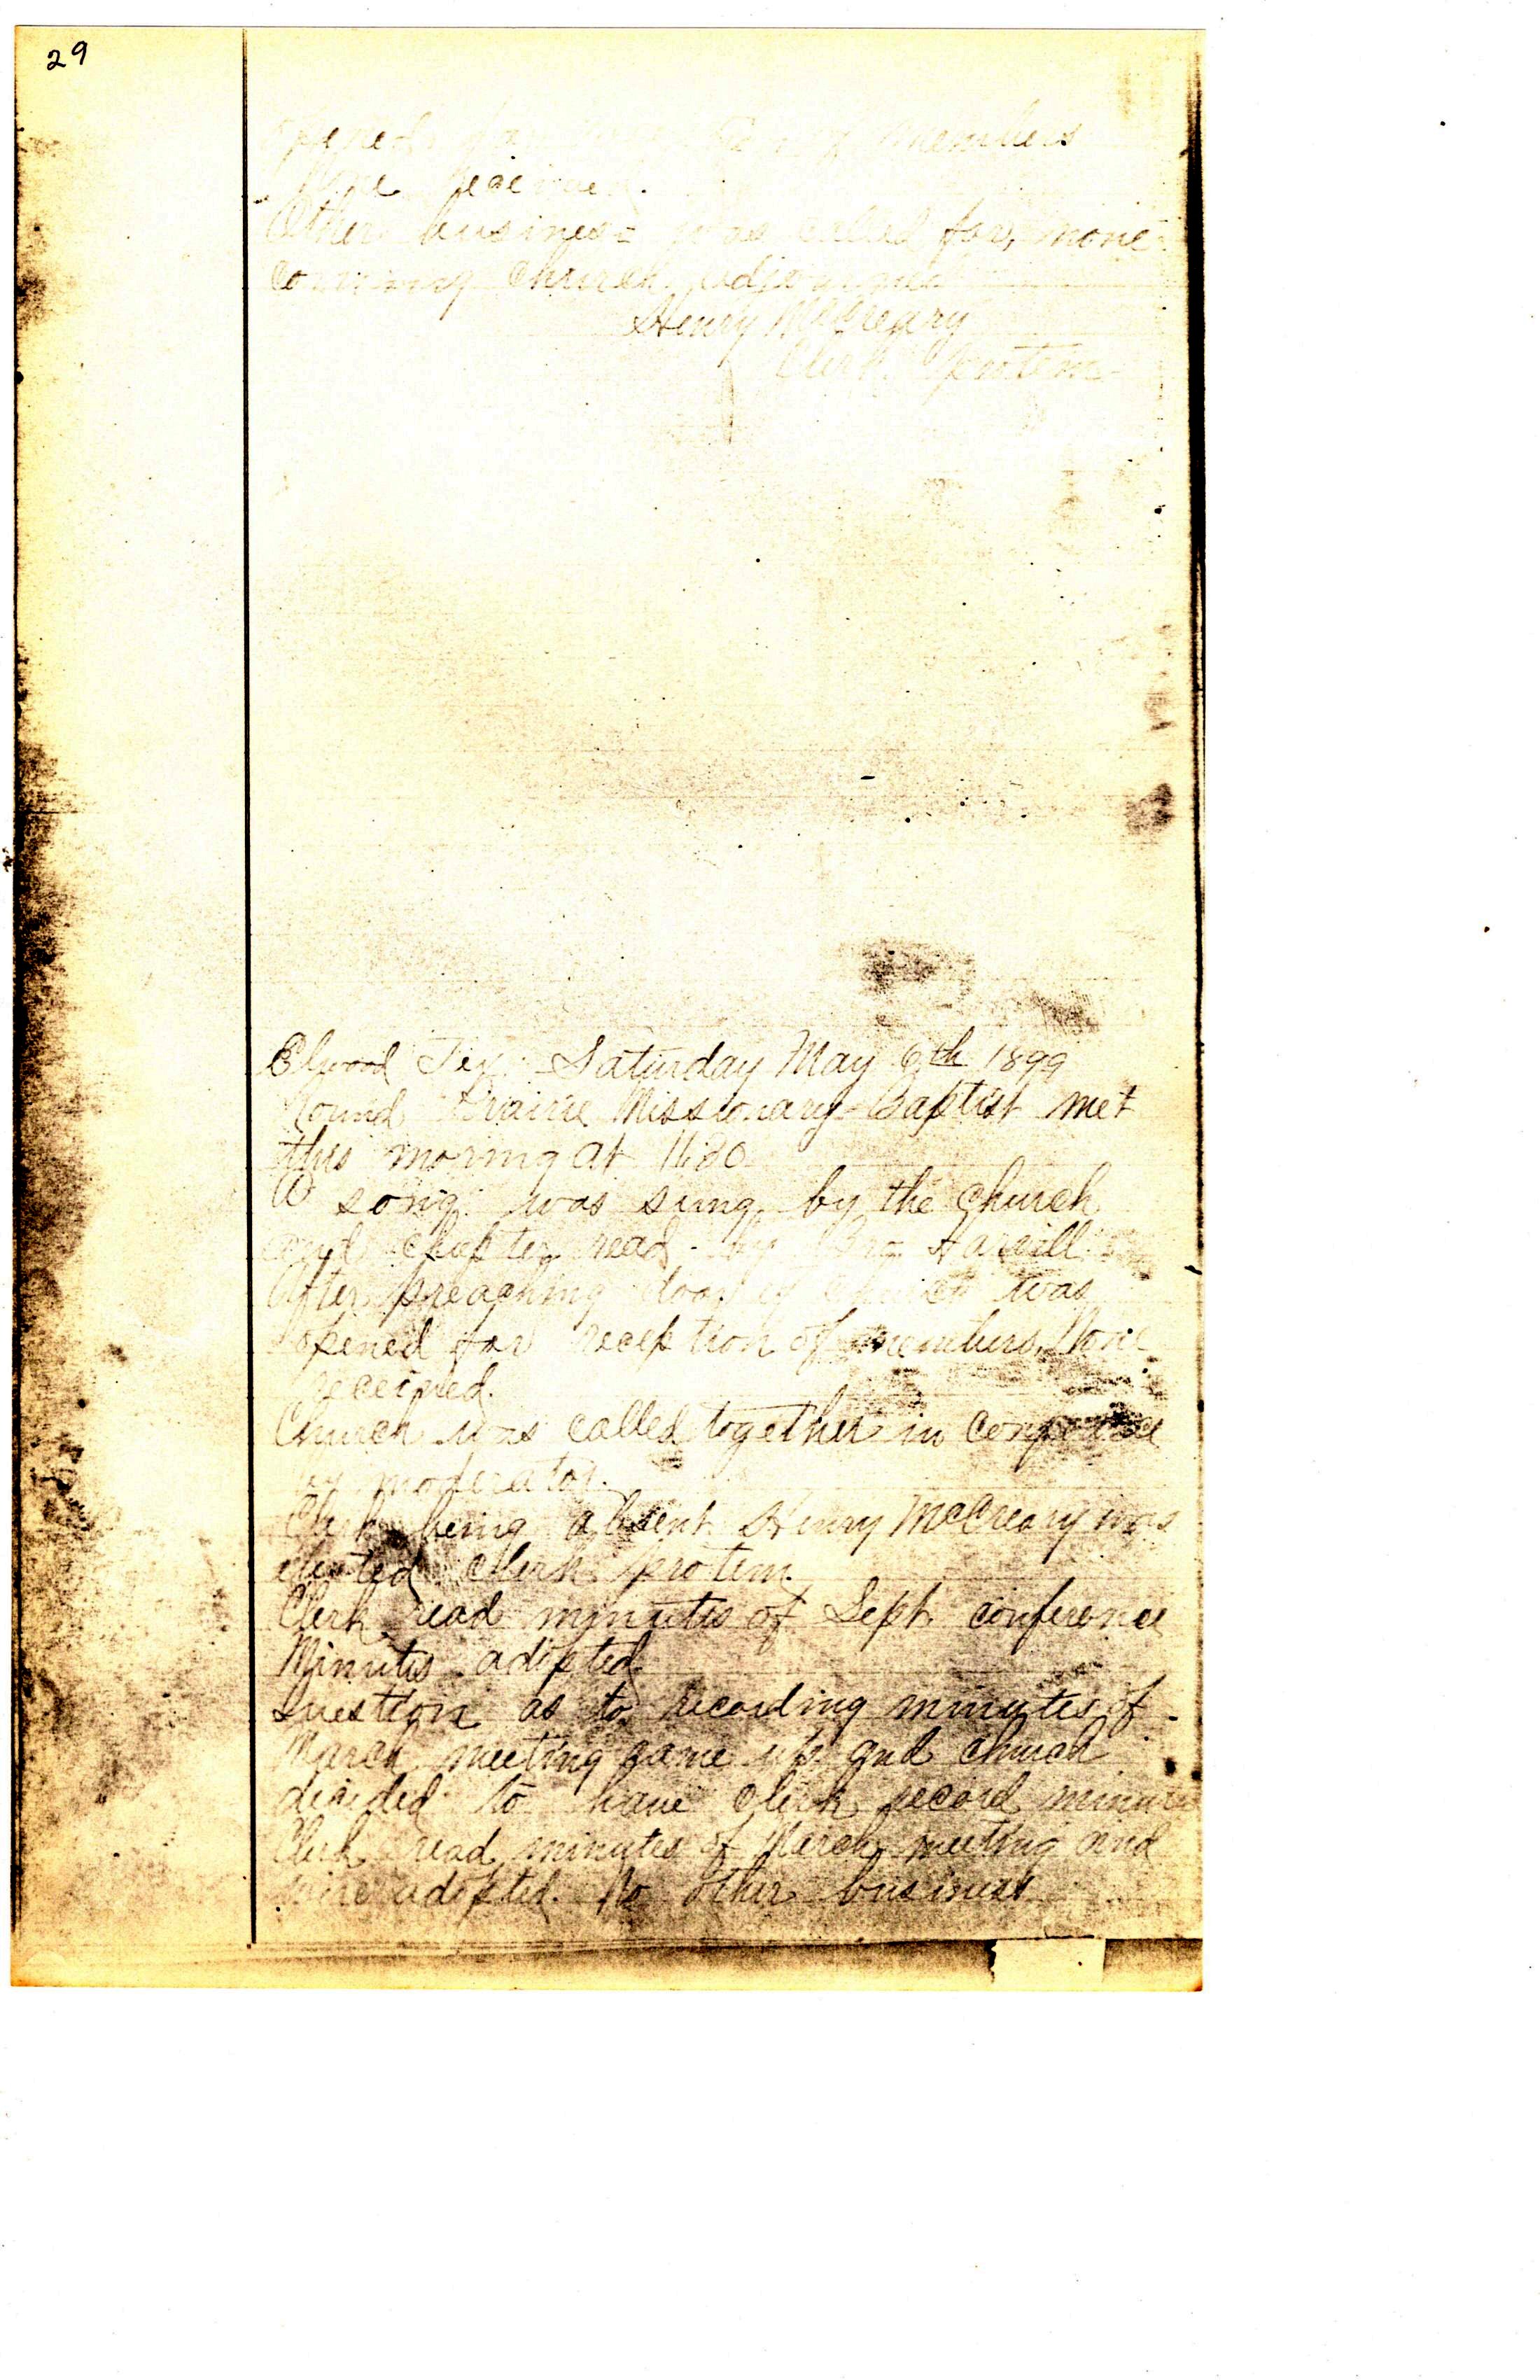 29
opened members
None received.
Other business was called for, none
coming Church adjourned
Henry McCreary
Clerk protem
Elwood Tex. Saturday May 6th 1899
Round Prairie Missionary Baptist met
this morning at 11:30
A song was sung by the church
and chapter read by Bro Harvill
After preaching door of church was
opened for reception of members. None
received.
Church was called together in conference
by moderator.
Clerk being absent Henry McCreary was
elected clerk protem.
Clerk read minutes of Sept conference
Minutes adopted
Question as to recording minutes of
March meeting came up and church
decided to have clerk record minutes
Clerk read minutes of March meeting and
were adopted. No other business